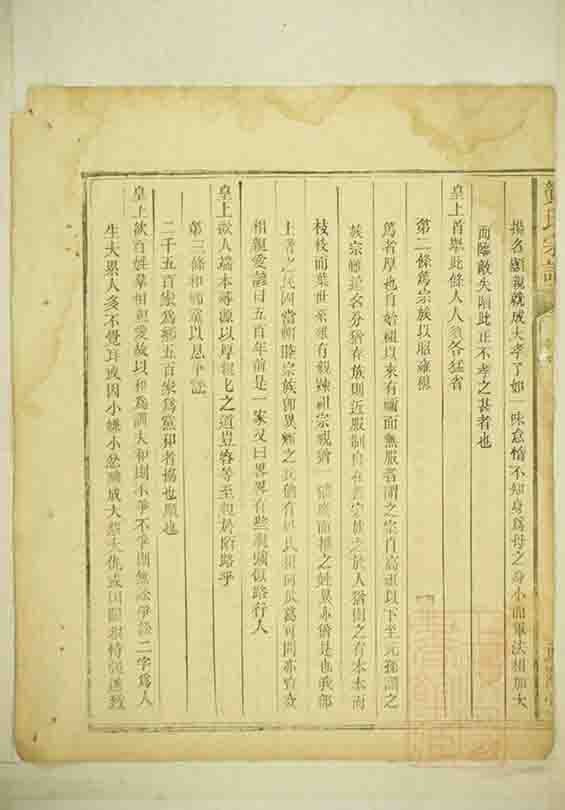 揚名顯親就成大孝了如一味怠惰不知身爲母之身小而軍法相加大
而臨敵失陷此正不孝之甚者也
皇上首舉此條人人須各猛省
第二條篤宗族以昭雍穆
篤者厚也自始祖以來有緦而無服者謂之宗自高祖以下至元孫謂之
族宗雖遠名分猶存族則近服制自在蓋宗族之於人猶樹之有本木而
枝枝而葉世系雖有親疎祖宗視猶 猶應而推之姓異亦猶是也我部
土著之民固當惇睦宗族卽異鄉之民倘有
相親愛諺曰五百年前是一家又曰畧畧有些親頭似路行人
皇上欲人端本尋源以厚親親之道豈容等至親於陌路乎
第三條和鄉黨以息爭訟
二千五百家爲鄉五百家爲黨和者協也順也
皇上欲百姓羣相親愛故以和爲訓夫和則不爭不爭則無訟爭訟二字爲人
生大累人多不覺耳或因小嫌小忿釀成大怨大仇或因